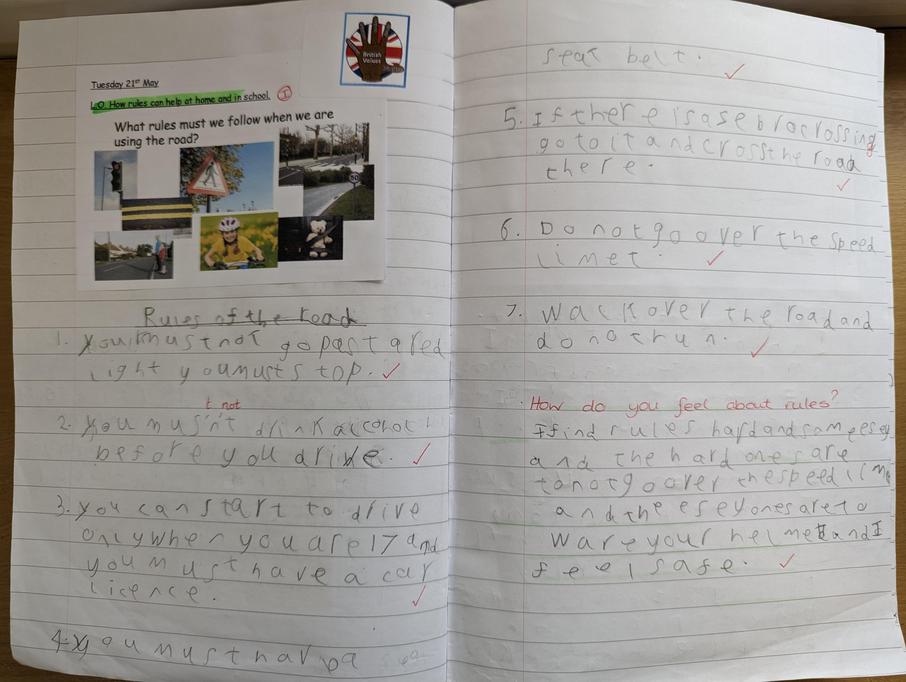 British
Values
Tuesday 21st May
L.O. How rules can help at home and in school.
I
What rules must we follow when we are
using the road?
Rules of the road
1. You must not go past a red
light you must stop.
t not
2. You musn't drink alcohol
before you drive.
3. You can start to drive
only when you are 17 and
you must have a car
licence.
4. You must hav a
seat belt.
5. If there is a sebra crossing
go to it and cross the road
there.
6. Do not go over the speed
limet.
7. Wack over the road and
do not run.
How do you feel about rules?
I find rules hard and som eesey
and the hard ones are
to not go over the speed lime
and the esey ones are to
ware your helmet and I
feel safe.